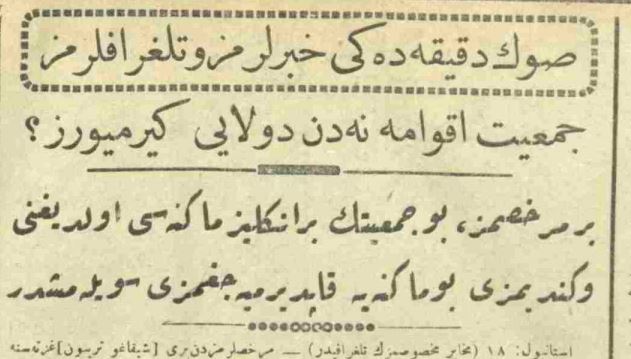 صوك دقیقه ده کی خبرلرمز و تلغرافلرمز
جمعیت اقوامه نه دن دولایی کیرمیورز؟
بر مرخصمز، بو جمعیتك بر انکلیز ماکنه سی اولدیغنی
وکندیمزی بو ماکنه یه قاپدیرمیه جغمزی سویله مشدر
استانبول: ۱۸ (مخابر مخصوصمزك تلغرافیدر) — مرخصلرمزدن بری [شیقاغو تریبون] غزته سنه